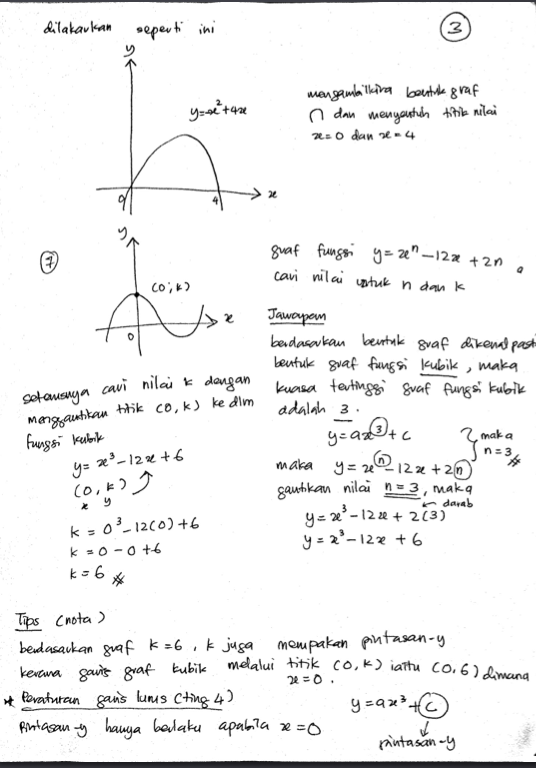 dilakarkan seperti ini
3
y
y=-x²+4x
mengambilkira bentuk graf
∩ dan menyentuh titik nilai
x=0 dan x=4
0
4
x
7
y
(0,k)
x
0
graf fungsi y=xⁿ-12x+2n.
cari nilai untuk n dan k
Jawapan
berdasarkan bentuk graf dikenalpasti
bentuk graf fungsi kubik, maka
kuasa tertinggi graf fungsi kubik
adalah 3.
y=ax³+c
maka
n=3
maka y=xⁿ-12x+2n
gantikan nilai n=3, maka
darab
y=x³-12x+2(3)
y=x³-12x+6
seterusnya cari nilai k dengan
menggantikan titik (0,k) ke dlm
fungsi kubik
y=x³-12x+6
(0,k)
x y
k=0³-12(0)+6
k=0-0+6
k=6
Tips (nota)
berdasarkan graf k=6, k juga merupakan pintasan-y
kerana garis graf kubik melalui titik (0,k) iaitu (0,6) dimana
x=0.
* Peraturan garis lurus (ting 4)
pintasan-y hanya berlaku apabila x=0
y=ax³+c
pintasan-y